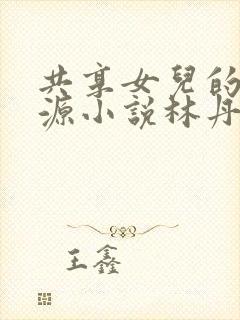 共享女兒的
源小說林丹
王鑫